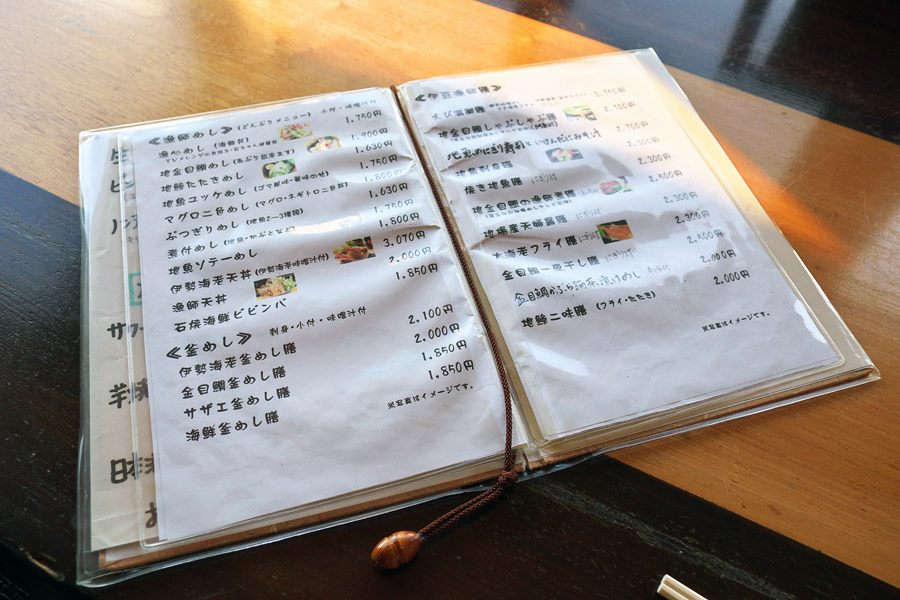 ≪漁師めし≫(どんぶりメニュー) 小付・味噌汁付
漁心めし (海鮮丼) 1,750円
地金目鯛めし(あぶり出来ます) 1,900円
地鯵たたきめし 1,630円
地魚ユッケめし(ゴマ風味・薬味のせ) 1,750円
マグロニ色めし(マグロ・ネギトロニ色丼) 1,800円
ぶつぎりめし(地魚2〜3種類) 1,630円
煮付めし 1,750円
地魚ソテーめし 1,800円
伊勢海老天丼(伊勢海老味噌汁付) 3,070円
漁師天丼 2,000円
石焼海鮮ビビンバ 1,850円
≪釜めし≫ 刺身・小付・味噌汁付
伊勢海老釜めし膳 2,100円
金目鯛釜めし膳 2,000円
サザエ釜めし膳 1,850円
海鮮釜めし膳 1,850円
※写真はイメージです。
地金目鯛しゃぶしゃぶ膳 2,700円
地魚のにぎり寿司と
地魚刺身膳 2,300円
焼き地魚膳 にぎり付 2,300円
地金目鯛の漁師煮膳 2,500円
地場産天婦羅膳 2,300円
大海老フライ膳 にぎり付 2,300円
金目鯛一夜干し膳 にぎり付 2,500円
金目鯛かぶら茶漬けめし 2,000円
地鯵二味膳 (フライ・たたき) 2,000円
※写真はイメージです。